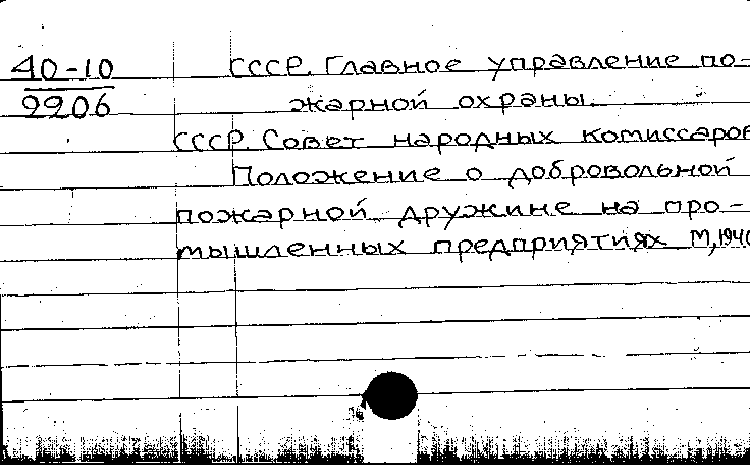 40-10
9906
СССР. Главное управление по-
жарной охраны.
СССР. Совет народных комиссаров
Положение о добровольной
пожарной дружине на про-
мышленных предприятиях М, 1940